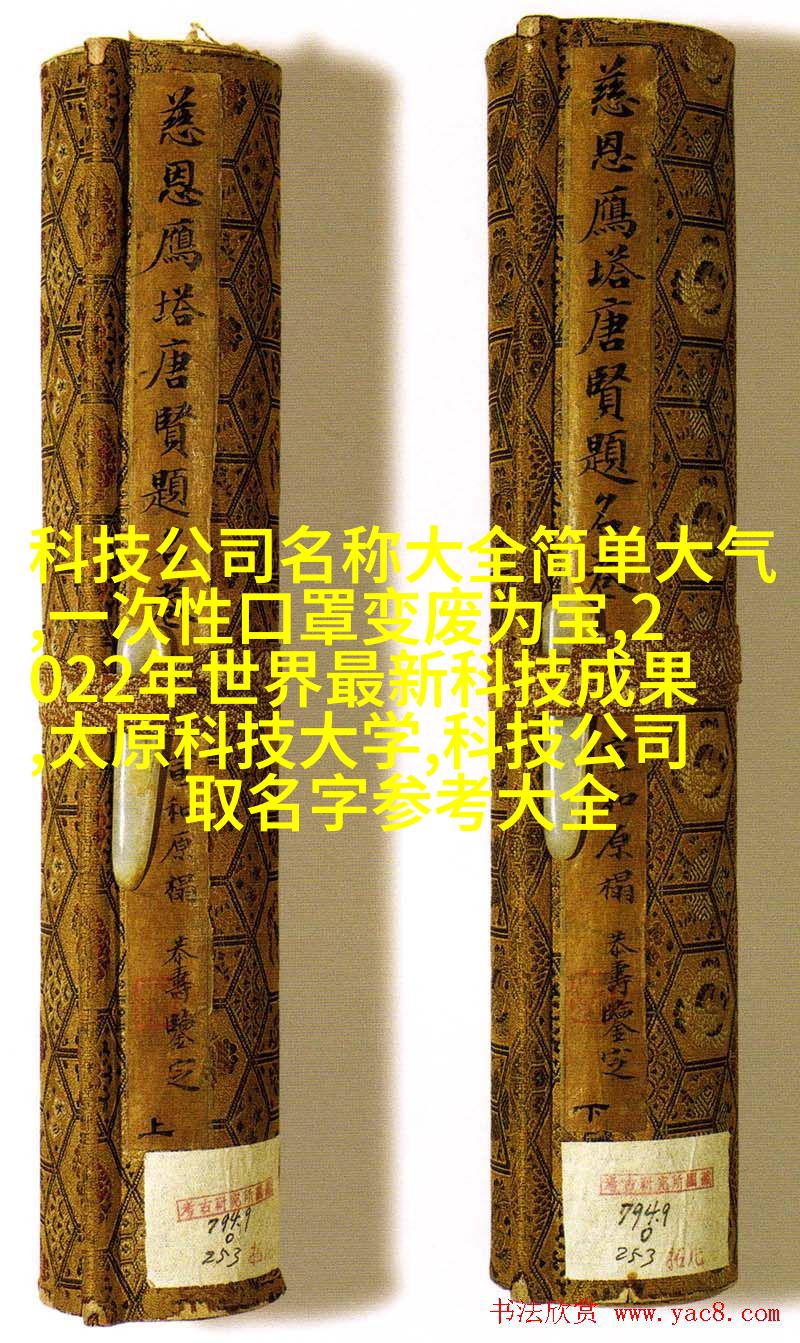 慈恩鴈塔唐賢題
原榻
恭壽鑒定
上
考古研究所圖藏
794.9
0
253 拓片
慈恩鴈塔唐賢題名卷
宣和原榻
恭壽鑒定
下
考古研究所圖藏
794.9
0
253 拓片
科技公司名称大全简单大气
,一次性口罩变废为宝,2
022年世界最新科技成果
,太原科技大学,科技公司
取名字参考大全
书法欣赏 www.yac8.com